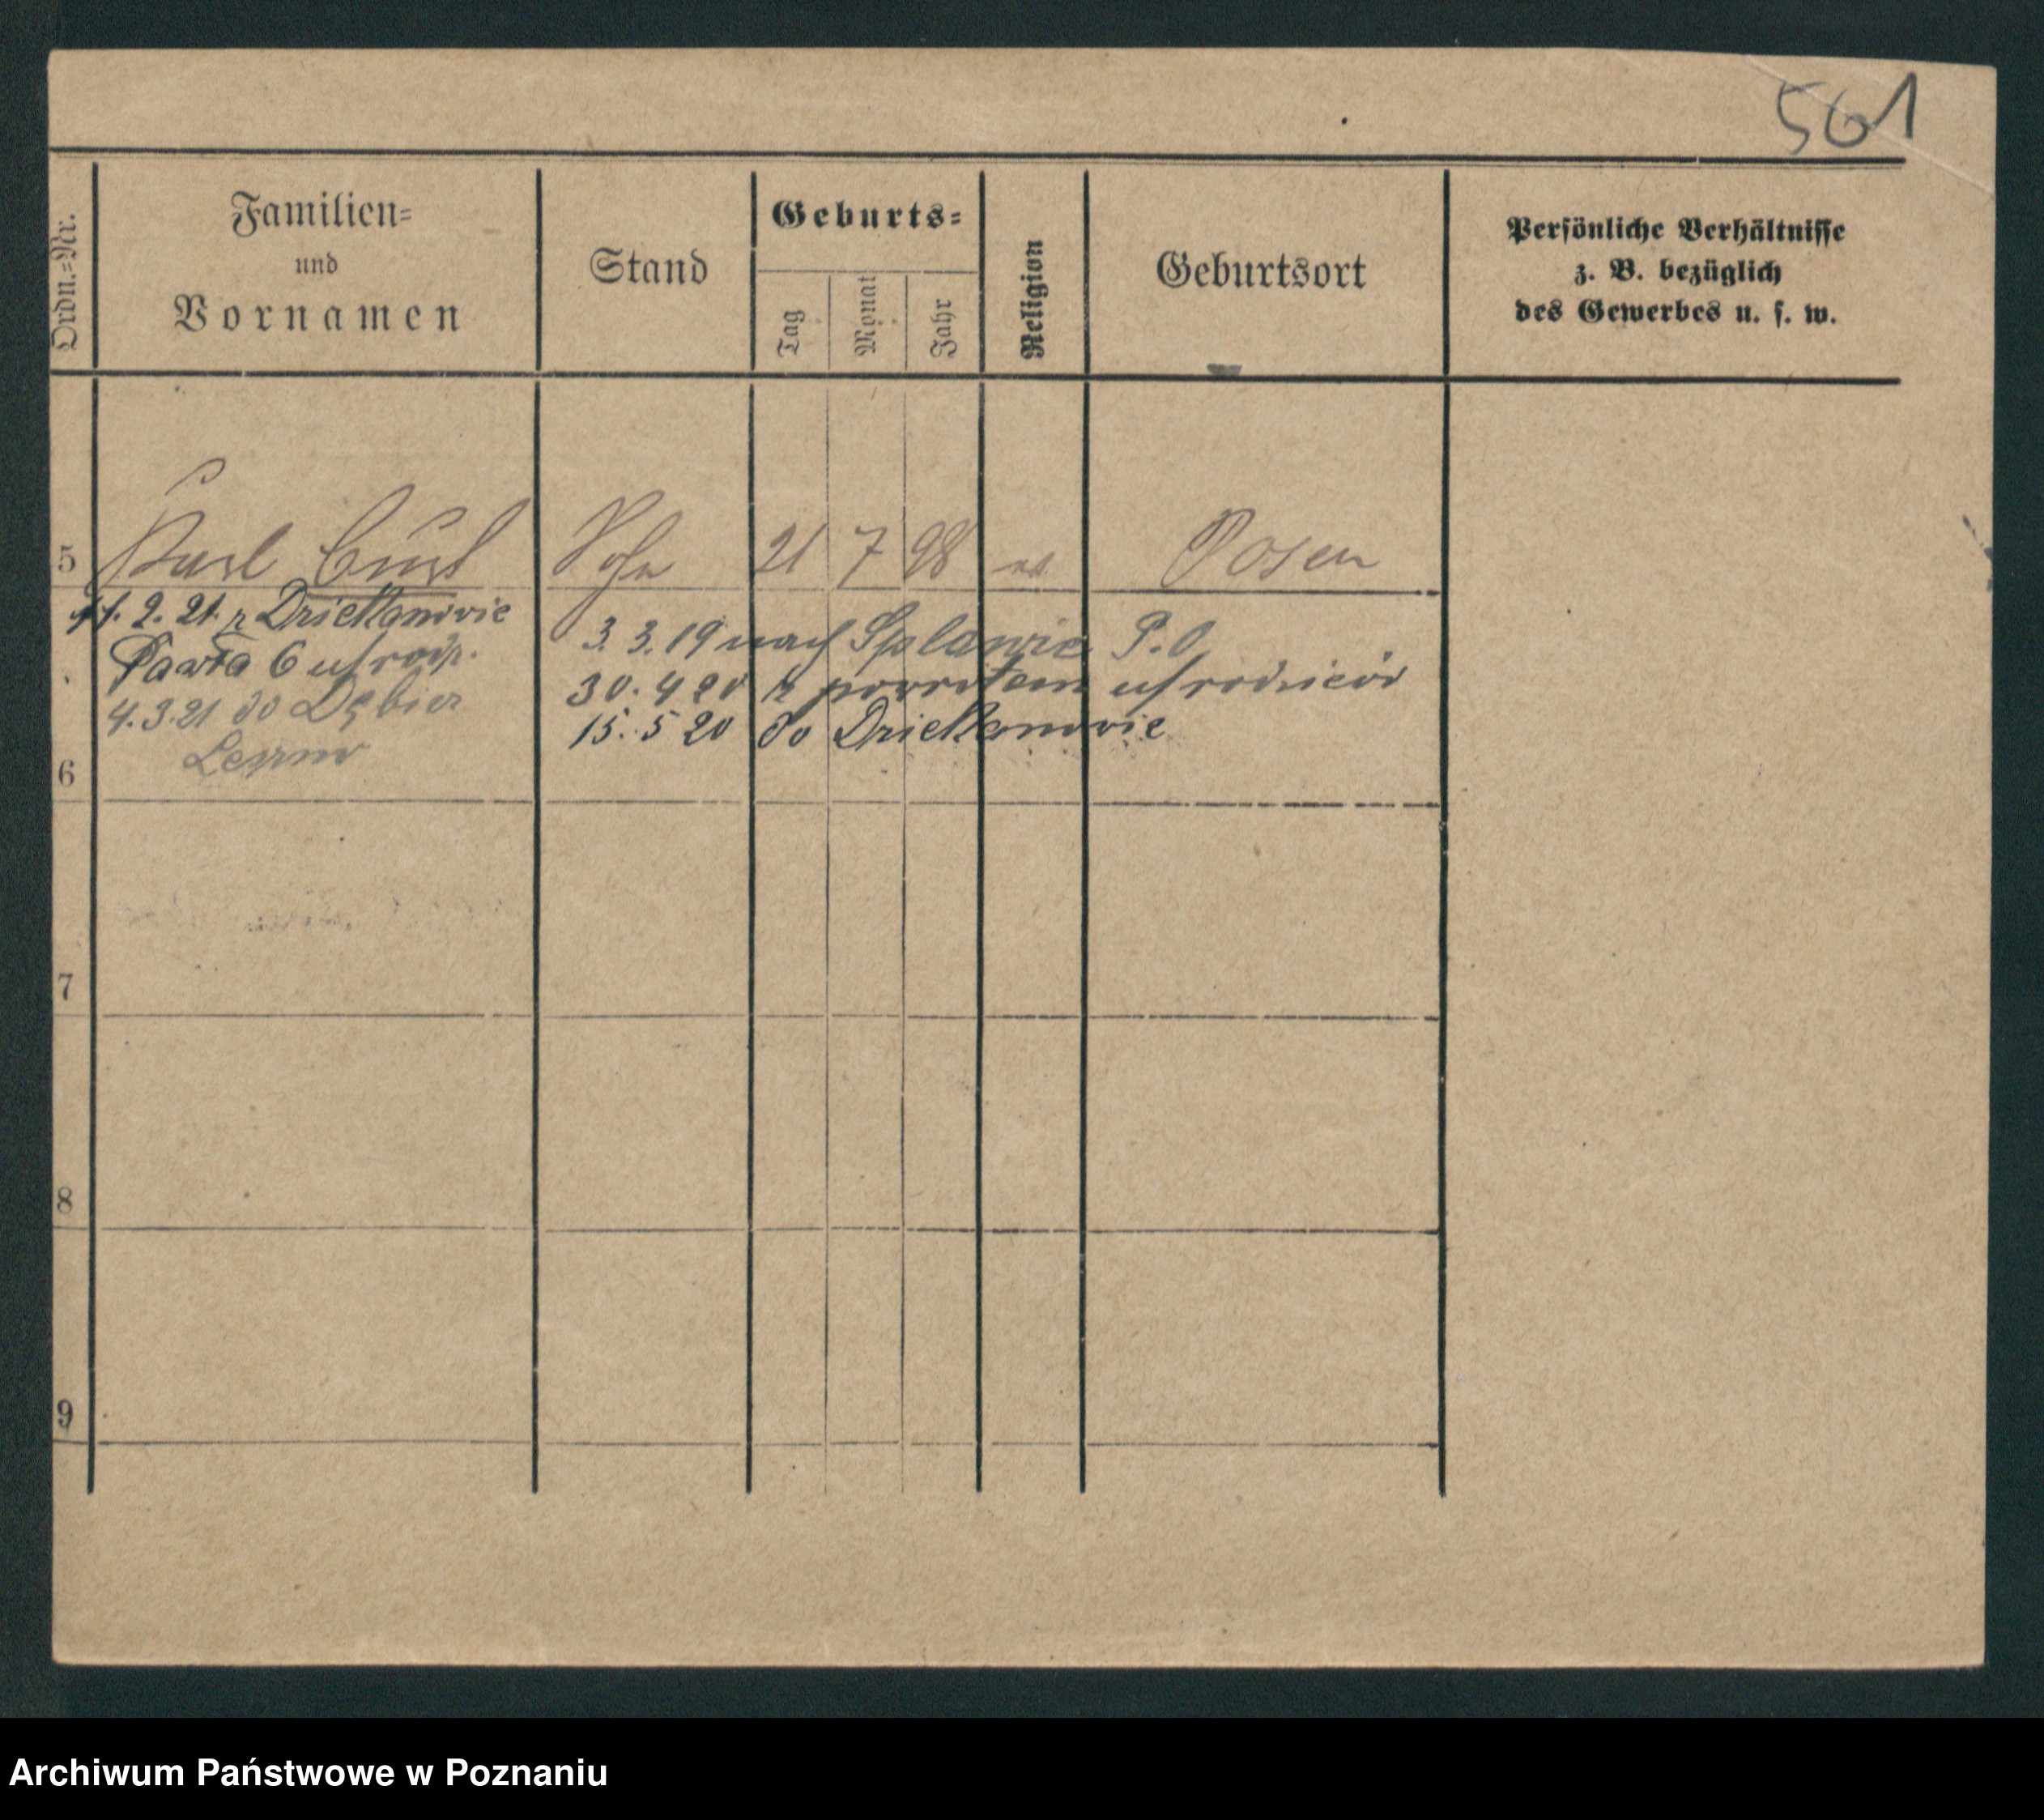 561
Ordn.=Nr.
Familien=
und
Vornamen
Stand
Geburts=
Tag
Monat
Jahr
Religion
Geburtsort
Persönliche Verhältnisse
z. B. bezüglich
des Gewerbes u. s. w.
5 Karl Curt Sohn 21 7 98 Posen
11. 2. 21. z Dziekanowic
Pawła 6 u/rodz.
4.3.21 do Dębiec
3. 3. 19 nach Splawie P.O.
30. 4 20 z powrotem u/rodziców
15. 5 20 do Dziekanowic
6
7
8
9
Archiwum Państwowe w Poznaniu